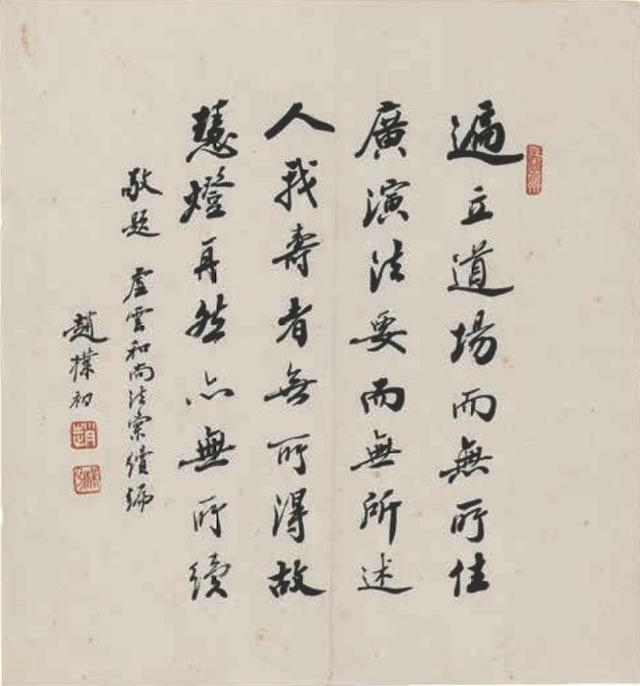 遍立道場而無所住
廣演法要而無所述
人我壽者無所得故
慧燈再然亦無所續
敬題 虛雲和尚法彙續編
趙樸初